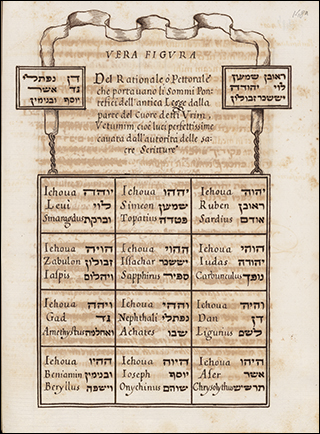 VERA FIGVRA
דן נפתלי
גד אשר
יוסף ובנימין
Del Rationale ò Pettorale
che portauano li Sommi Pon-
tefici dell'antica Legge dalla
parte del Cuore detti Vrim
Vetumim cioè luci perfettissime
cauata dall'autorita delle sa-
cre Scritture
ראובן שמעון
לוי יהודה
יששכר זבולון
Iehoua יוהה
Leui לוי
Smaragdus וברקת
Iehoua יההו
Simeon שמעון
Topatius פטדה
Iehoua יהוה
Ruben ראובן
Sardius אודם
Iehoua הויה
Zabulon זבולון
Iaspis ויהלום
Iehoua ההוי
Issachar יששכר
Sapphirus ספיר
Iehoua הוהי
Iudas יהודה
Carbunculus נופך
Iehoua ויהה
Gad גד
Amethystus ואחלמה
Iehoua
Nephthali נפתלי
Achates שבו
Iehoua והיה
Dan דן
Ligurius לשם
Iehoua ההיו
Beniamin ובנימין
Beryllus וישפה
Iehoua היוה
Ioseph יוסף
Onychinus שוהם
Iehoua היהו
Aser אשר
Chrysolythus תרשיש